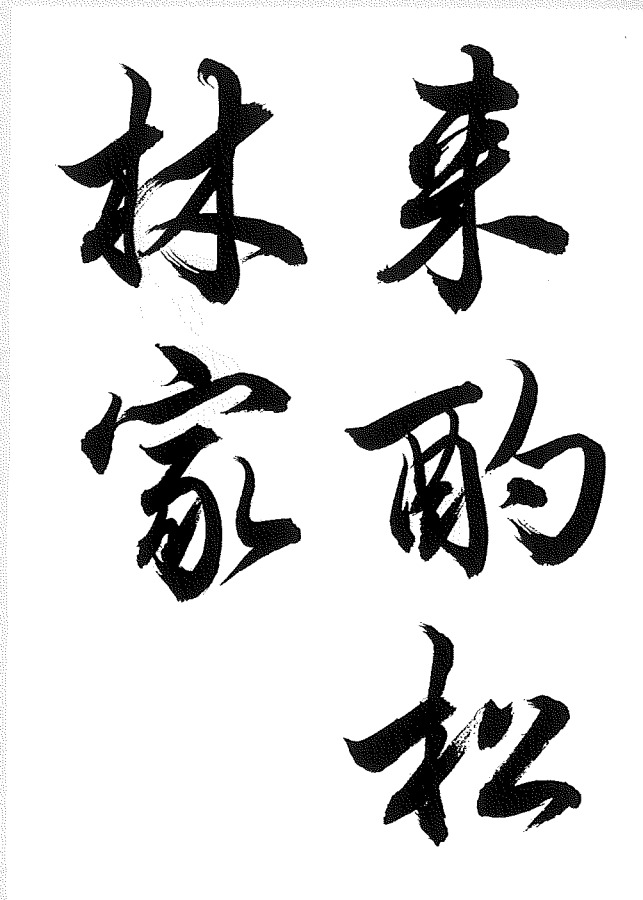 来酌松
林家